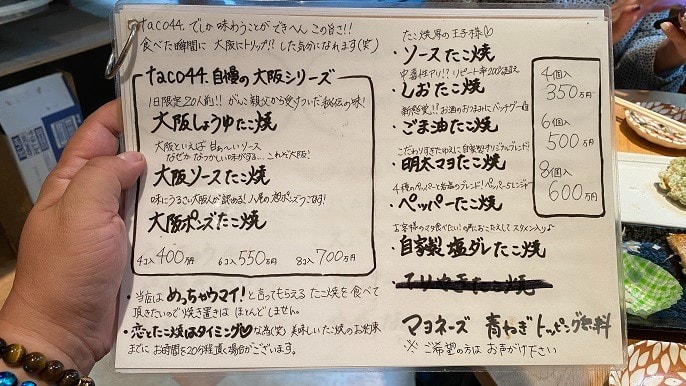 taco44.でしか味わうことができへんこの旨さ!!
食べた瞬間に大阪にトリップ!!した気分になれます(笑)
taco44.自慢の大阪シリーズ
1日限定20人前!!がんこ親父から受けついだ秘伝の味!
大阪しょうゆたこ焼
大阪といえば甘ぁ〜いソース
なぜかなつかしい味がする…これぞ大阪!
大阪ソースたこ焼
味にうるさい大阪人が認める!人気の想ポンズうござる!
大阪ポンズたこ焼
4コ入400万円 6コ入550万円 8コ入700万円
・当店はめっちゃウマイ!と言ってもらえるたこ焼を食べて
頂きたいので焼き置きはほとんどしません。
・恋とたこ焼はタイミング♡な為(笑)美味しいたこ焼のお出来
までにお時間を20分程頂く場合がございます。
たこ焼界の王子様♡
・ソースたこ焼
中毒性アリ!?リピート率200%超え
・しおたこ焼
新感覚!!お酒のおつまみにバッチグー
・ごま油たこ焼
こだわりすぎたゆえに自家製オリジナルブレンド!
・明太マヨたこ焼
4種のペッパーと岩塩のブレンド!ペッパー5レンジャー
・ペッパーたこ焼
お客様のマタ食べたい!の声におこたえしてスタメン入り♪
・自家製塩ダレたこ焼
・てりやきたこ焼
4個入
350万円
6個入
500万円
8個入
600万円
マヨネーズ 青ねぎトッピング無料
※ご希望の方はお声がけ下さい